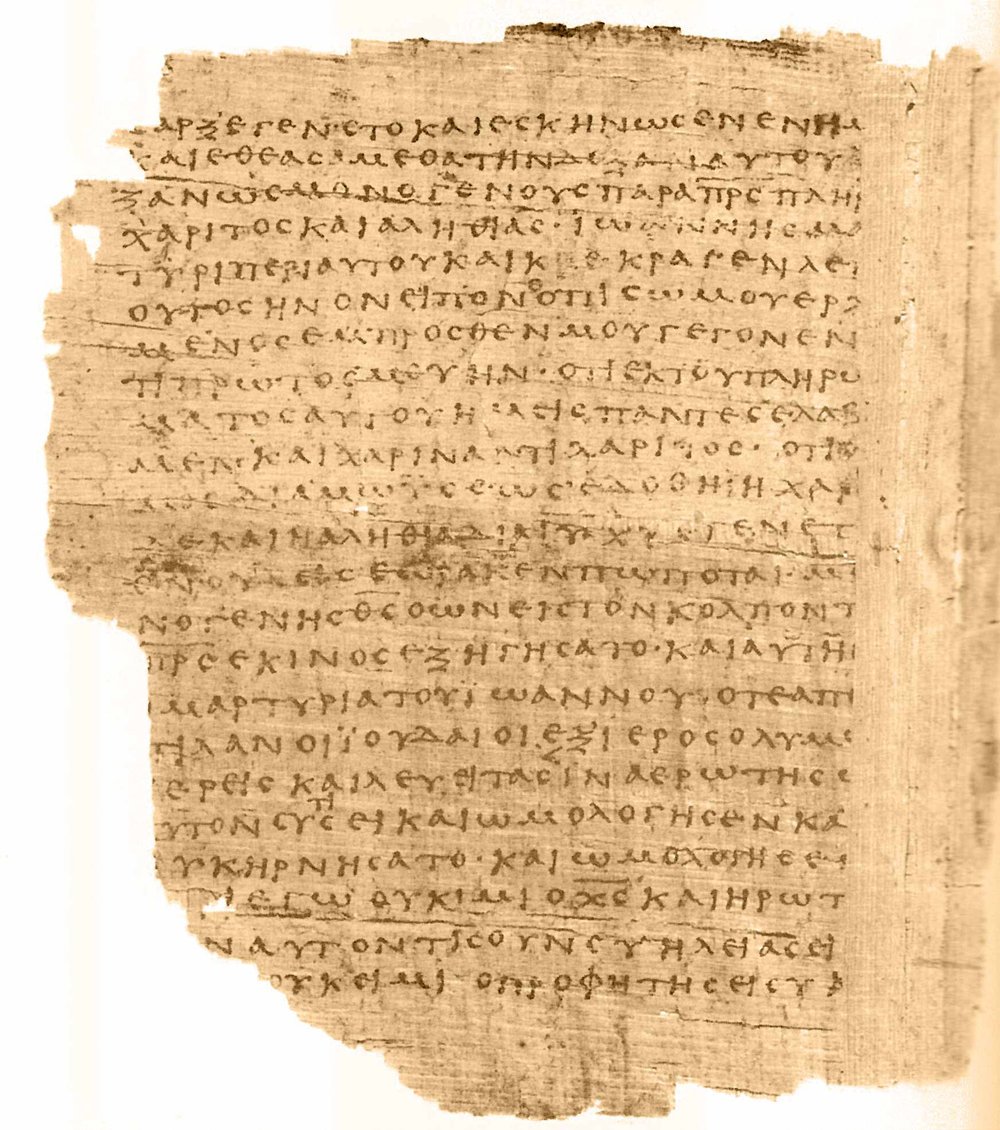 ΑΡΞΕΓΕΝΕΤΟΚΑΙΕϹΚΗΝΩϹΕΝΕΝΗΜ
ΚΑΙΕΘΕΑϹΑΜΕΘΑΤΗΝΔΟΞΑΝΑΥΤΟΥ
ΞΑΝΩϹΜΟΝΟΓΕΝΟΥϹΠΑΡΑΠ̅Ρ̅Ϲ̅ΠΛΗΡ
ΧΑΡΙΤΟϹΚΑΙΑΛΗΘΙΑϹ·ΙΩΑΝΝΗϹΜΑ
ΤΥΡΙΠΕΡΙΑΥΤΟΥΚΑΙΚΕΚΡΑΓΕΝΛΕΓ
ΟΥΤΟϹΗΝΟΝΕΙΠΟΝΟΟΠΙϹΩΜΟΥΕΡΧ
ΜΕΝΟϹΕΜΠΡΟϹΘΕΝΜΟΥΓΕΓΟΝΕΝ
ΤΙΠΡΩΤΟϹΜΟΥΗΝ·ΟΤΙΕΚΤΟΥΠΛΗΡΩ
ΜΑΤΟϹΑΥΤΟΥΗΜΕΙϹΠΑΝΤΕϹΕΛΑΒ
ΜΕΝ·ΚΑΙΧΑΡΙΝΑΝΤΙΧΑΡΙΤΟϹ·ΟΤΙ
ΜΟϹΔΙΑΜΩΥϹΕΩϹΕΔΟΘΗΗΧΑΡ
ΔΕΚΑΙΗΑΛΗΘΙΑΔΙΑΙ̅Υ̅Χ̅Υ̅ΕΓΕΝΕΤ
ΘΝΟΥΔΕΙϹΕΩΡΑΚΕΝΠΩΠΟΤΑΙ·Μ
ΝΟΓΕΝΗϹΘ̅Ϲ̅ΟΩΝΕΙϹΤΟΝΚΟΛΠΟΝΤ
Π̅Ρ̅Ϲ̅ΕΚΙΝΟϹΕΞΗΓΗϹΑΤΟ·ΚΑΙΑΥΤΗ
ΜΑΡΤΥΡΙΑΤΟΥΪΩΑΝΝΟΥ·ΟΤΕΑΠ
ΤΙΛΑΝΟΙΪΟΥΔΑΙΟΙΕΞΙΕΡΟϹΟΛΥΜ
ΕΡΕΙϹΚΑΙΛΕΥΕΙΤΑϹΙΝΑΕΡΩΤΗϹ
ΥΤΟΝϹΥΤΙϹΕΙΚΑΙΩΜΟΛΟΓΗϹΕΝΚΑ
ΥΚΗΡΝΗϹΑΤΟ·ΚΑΙΩΜΟΛΟΓΗϹΕ
ΙΕΓΩΟΥΚΙΜΙΟΧ̅Ϲ̅ΚΑΙΗΡΩΤ
ΝΑΥΤΟΝΤΙϹΟΥΝϹΥΗΛΕΙΑϹΕΙ
ΟΥΚΕΙΜΙΟΠΡΟΦΗΤΗϹΕΙϹΥ